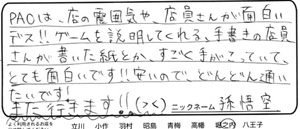 PACは、店の雰囲気や、店員さんが面白い
デス!!ゲームも説明してくれる、手書きの店員
さんが書いた紙とか、すごく手がこっていて、
とても面白いです!!安いので、どんどん通い
たいです!
また行きます!!(つく) ニックネーム 孫悟空
立川 小作 羽村 昭島 青梅 高幡 堀之内 八王子